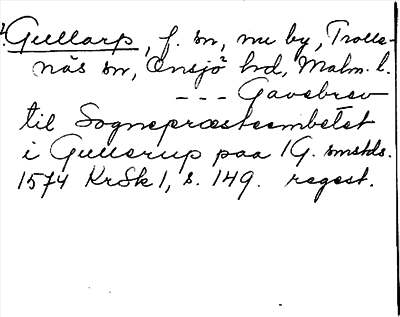 Gullarp, f. sn, nu by, Trolle-
näs sn, Onsjö² hd, Malm. l.
--- Gavebrev
til Sognepræsteembetet
i Gullerup paa 1G. smstds.
1574 KrSk 1, s. 149. regest.